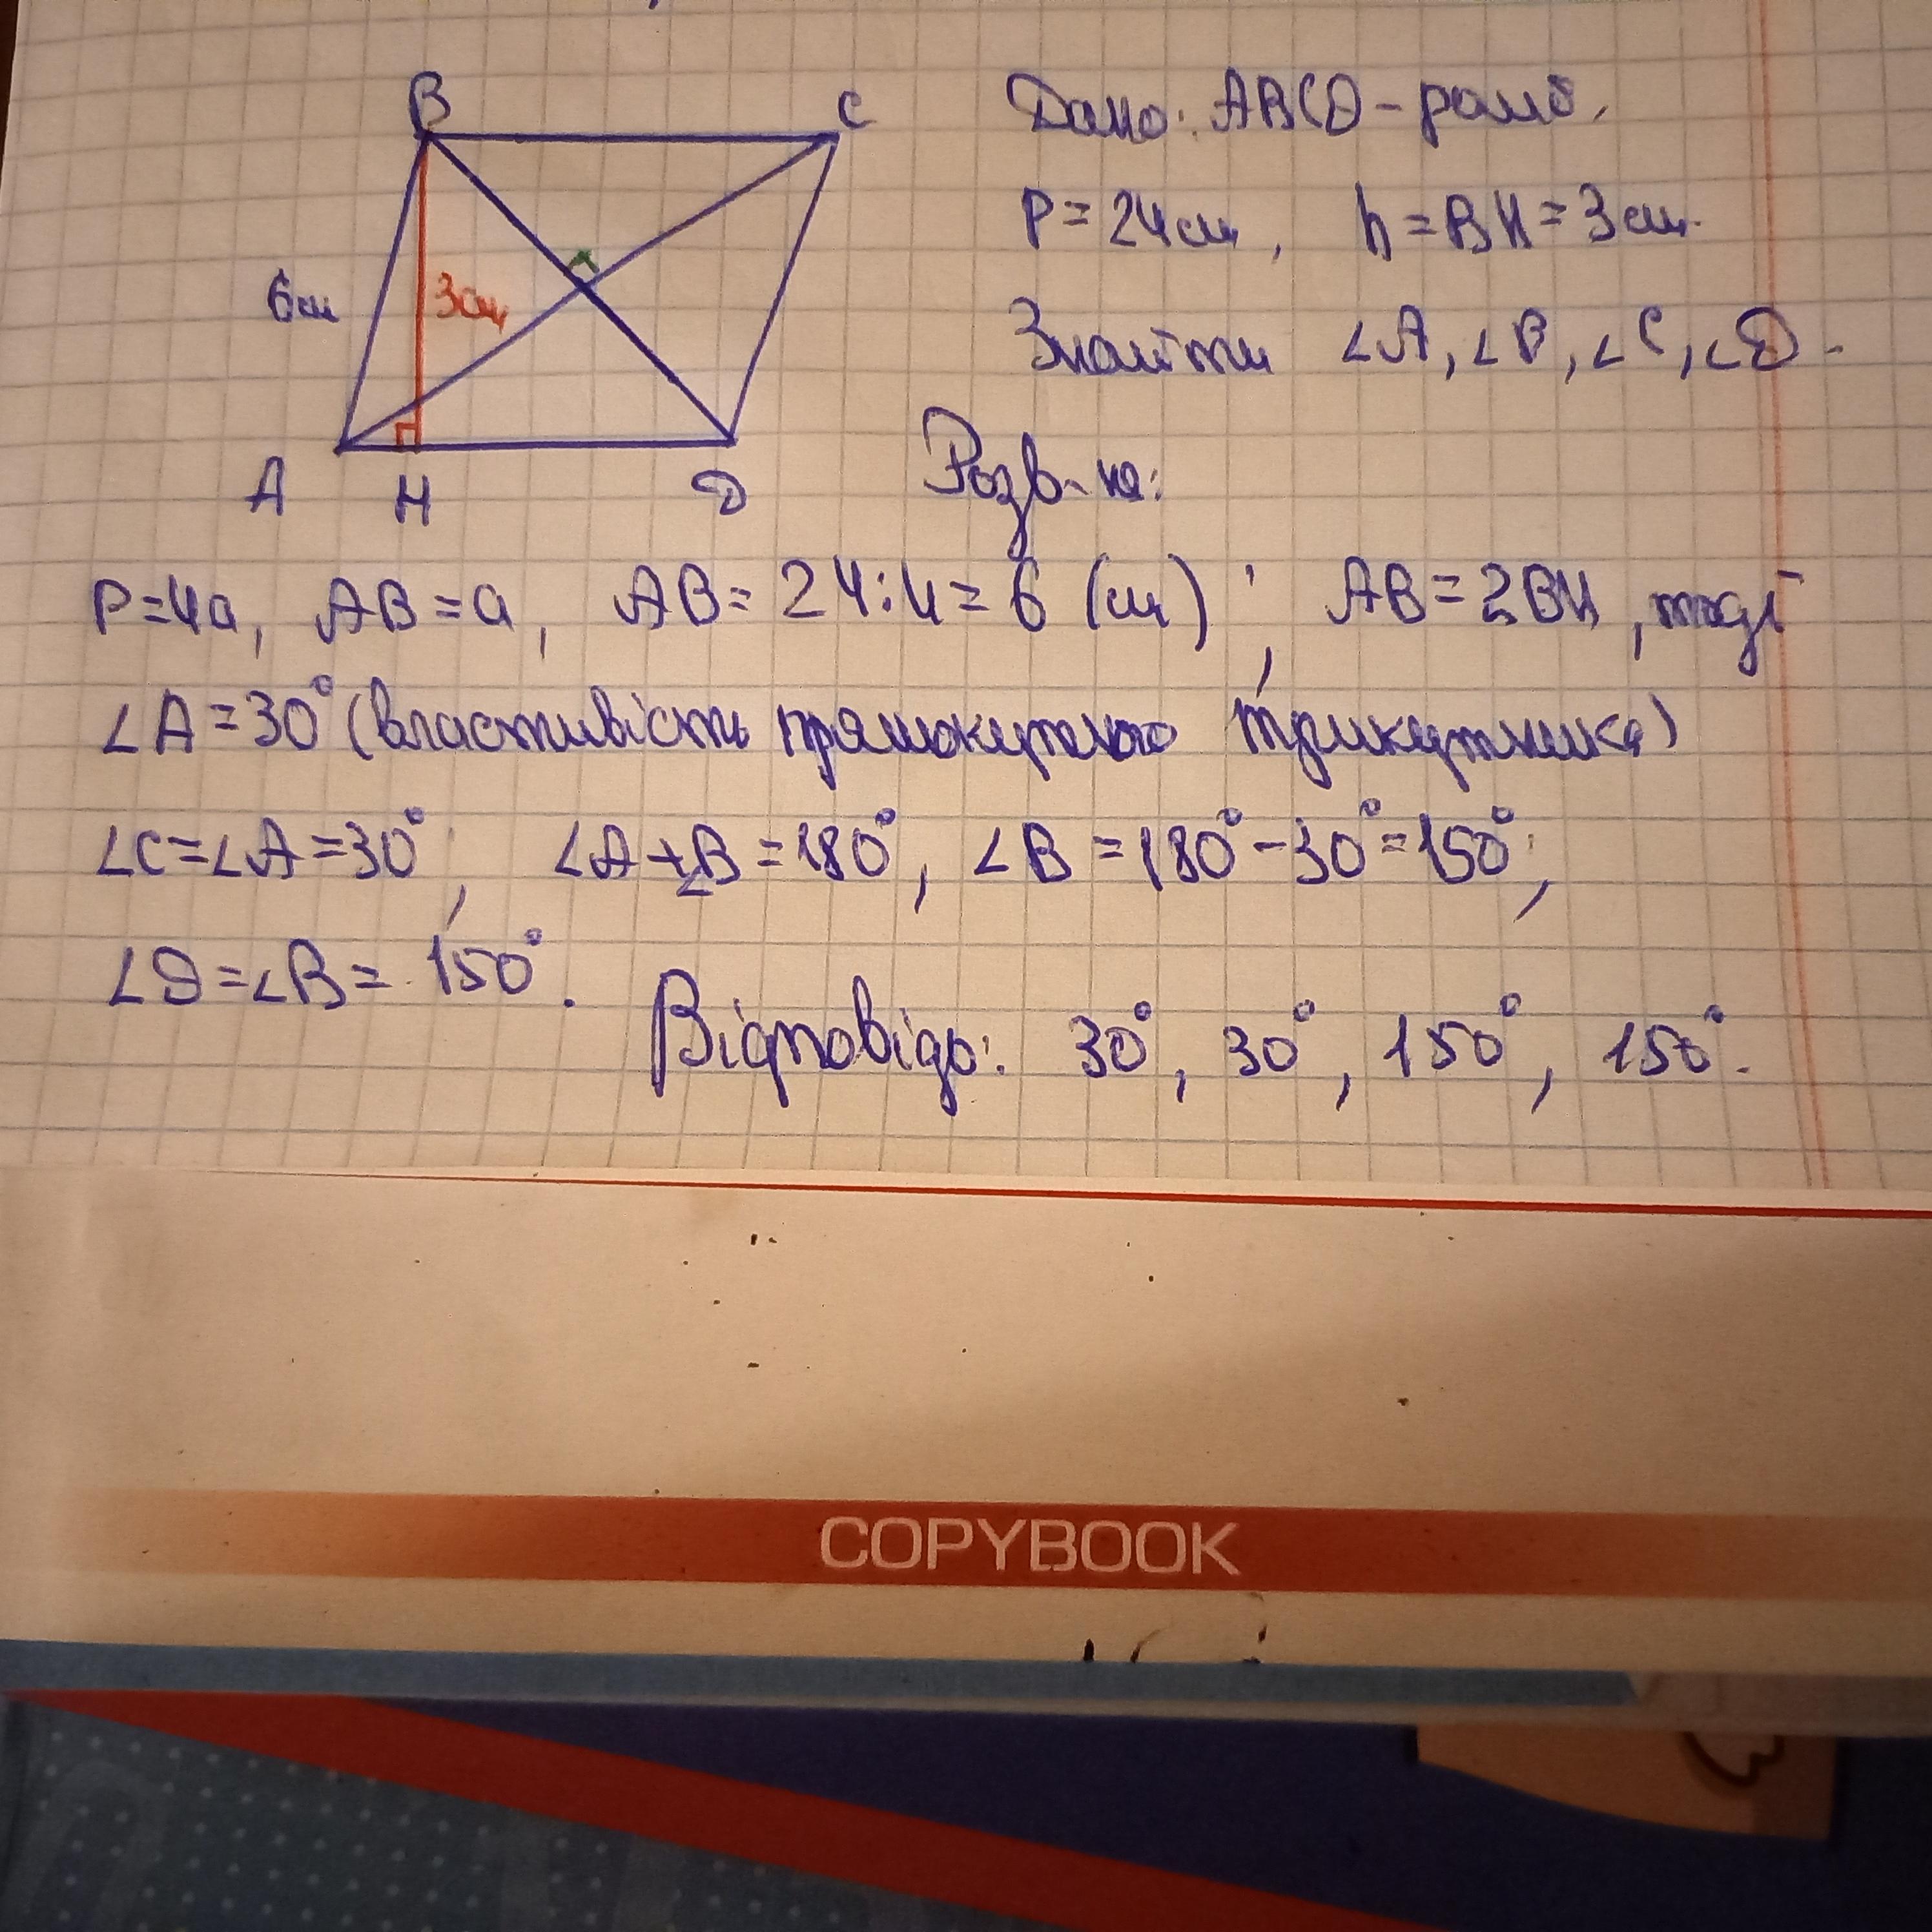 B C Дано: ABCD - ромб.
P = 24 см, h = BH = 3 см.
6 см 3 см
Знайти ∠A, ∠B, ∠C, ∠D.
A H D Розв-ня:
P = 4a, AB = a, AB = 24 : 4 = 6 (см) ; AB = 2BH, тоді
∠A = 30° (властивість прямокутного трикутника)
∠C = ∠A = 30° ; ∠A + ∠B = 180°, ∠B = 180° - 30° = 150° ;
∠D = ∠B = 150°.
Відповідь: 30°, 30°, 150°, 150°.
COPYBOOK